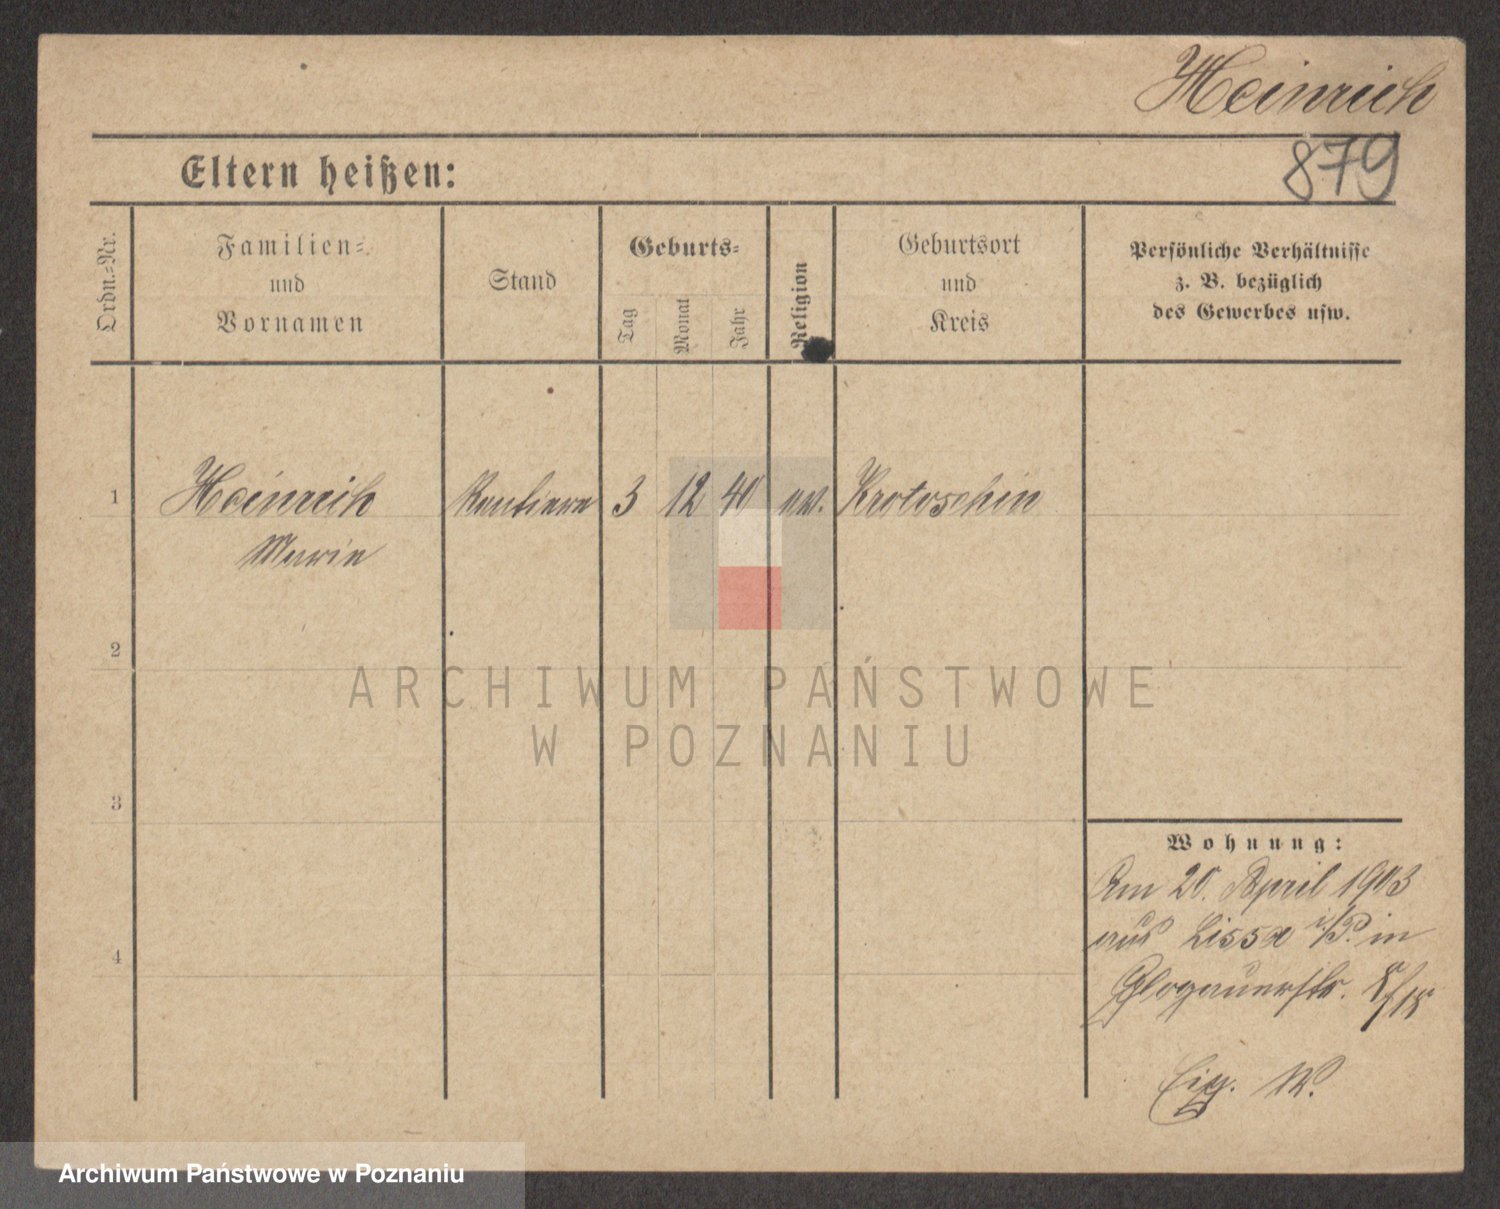 Heinrich
879
Eltern heißen:
Ordn.-Nr.
Familien-
und
Vornamen
Stand
Geburts-
Tag
Monat
Jahr
Religion
Geburtsort
und
Kreis
Persönliche Verhältnisse
z. B. bezüglich
des Gewerbes usw.
1 Heinrich Rentiere 3 12 40 ev. Krotoschin
Marie
2
ARCHIWUM PAŃSTWOWE
W POZNANIU
3
Wohnung:
Am 20. April 1903
aus Lissa i/P. in
4
Glogauerstr.
Eig. W.
Archiwum Państwowe w Poznaniu